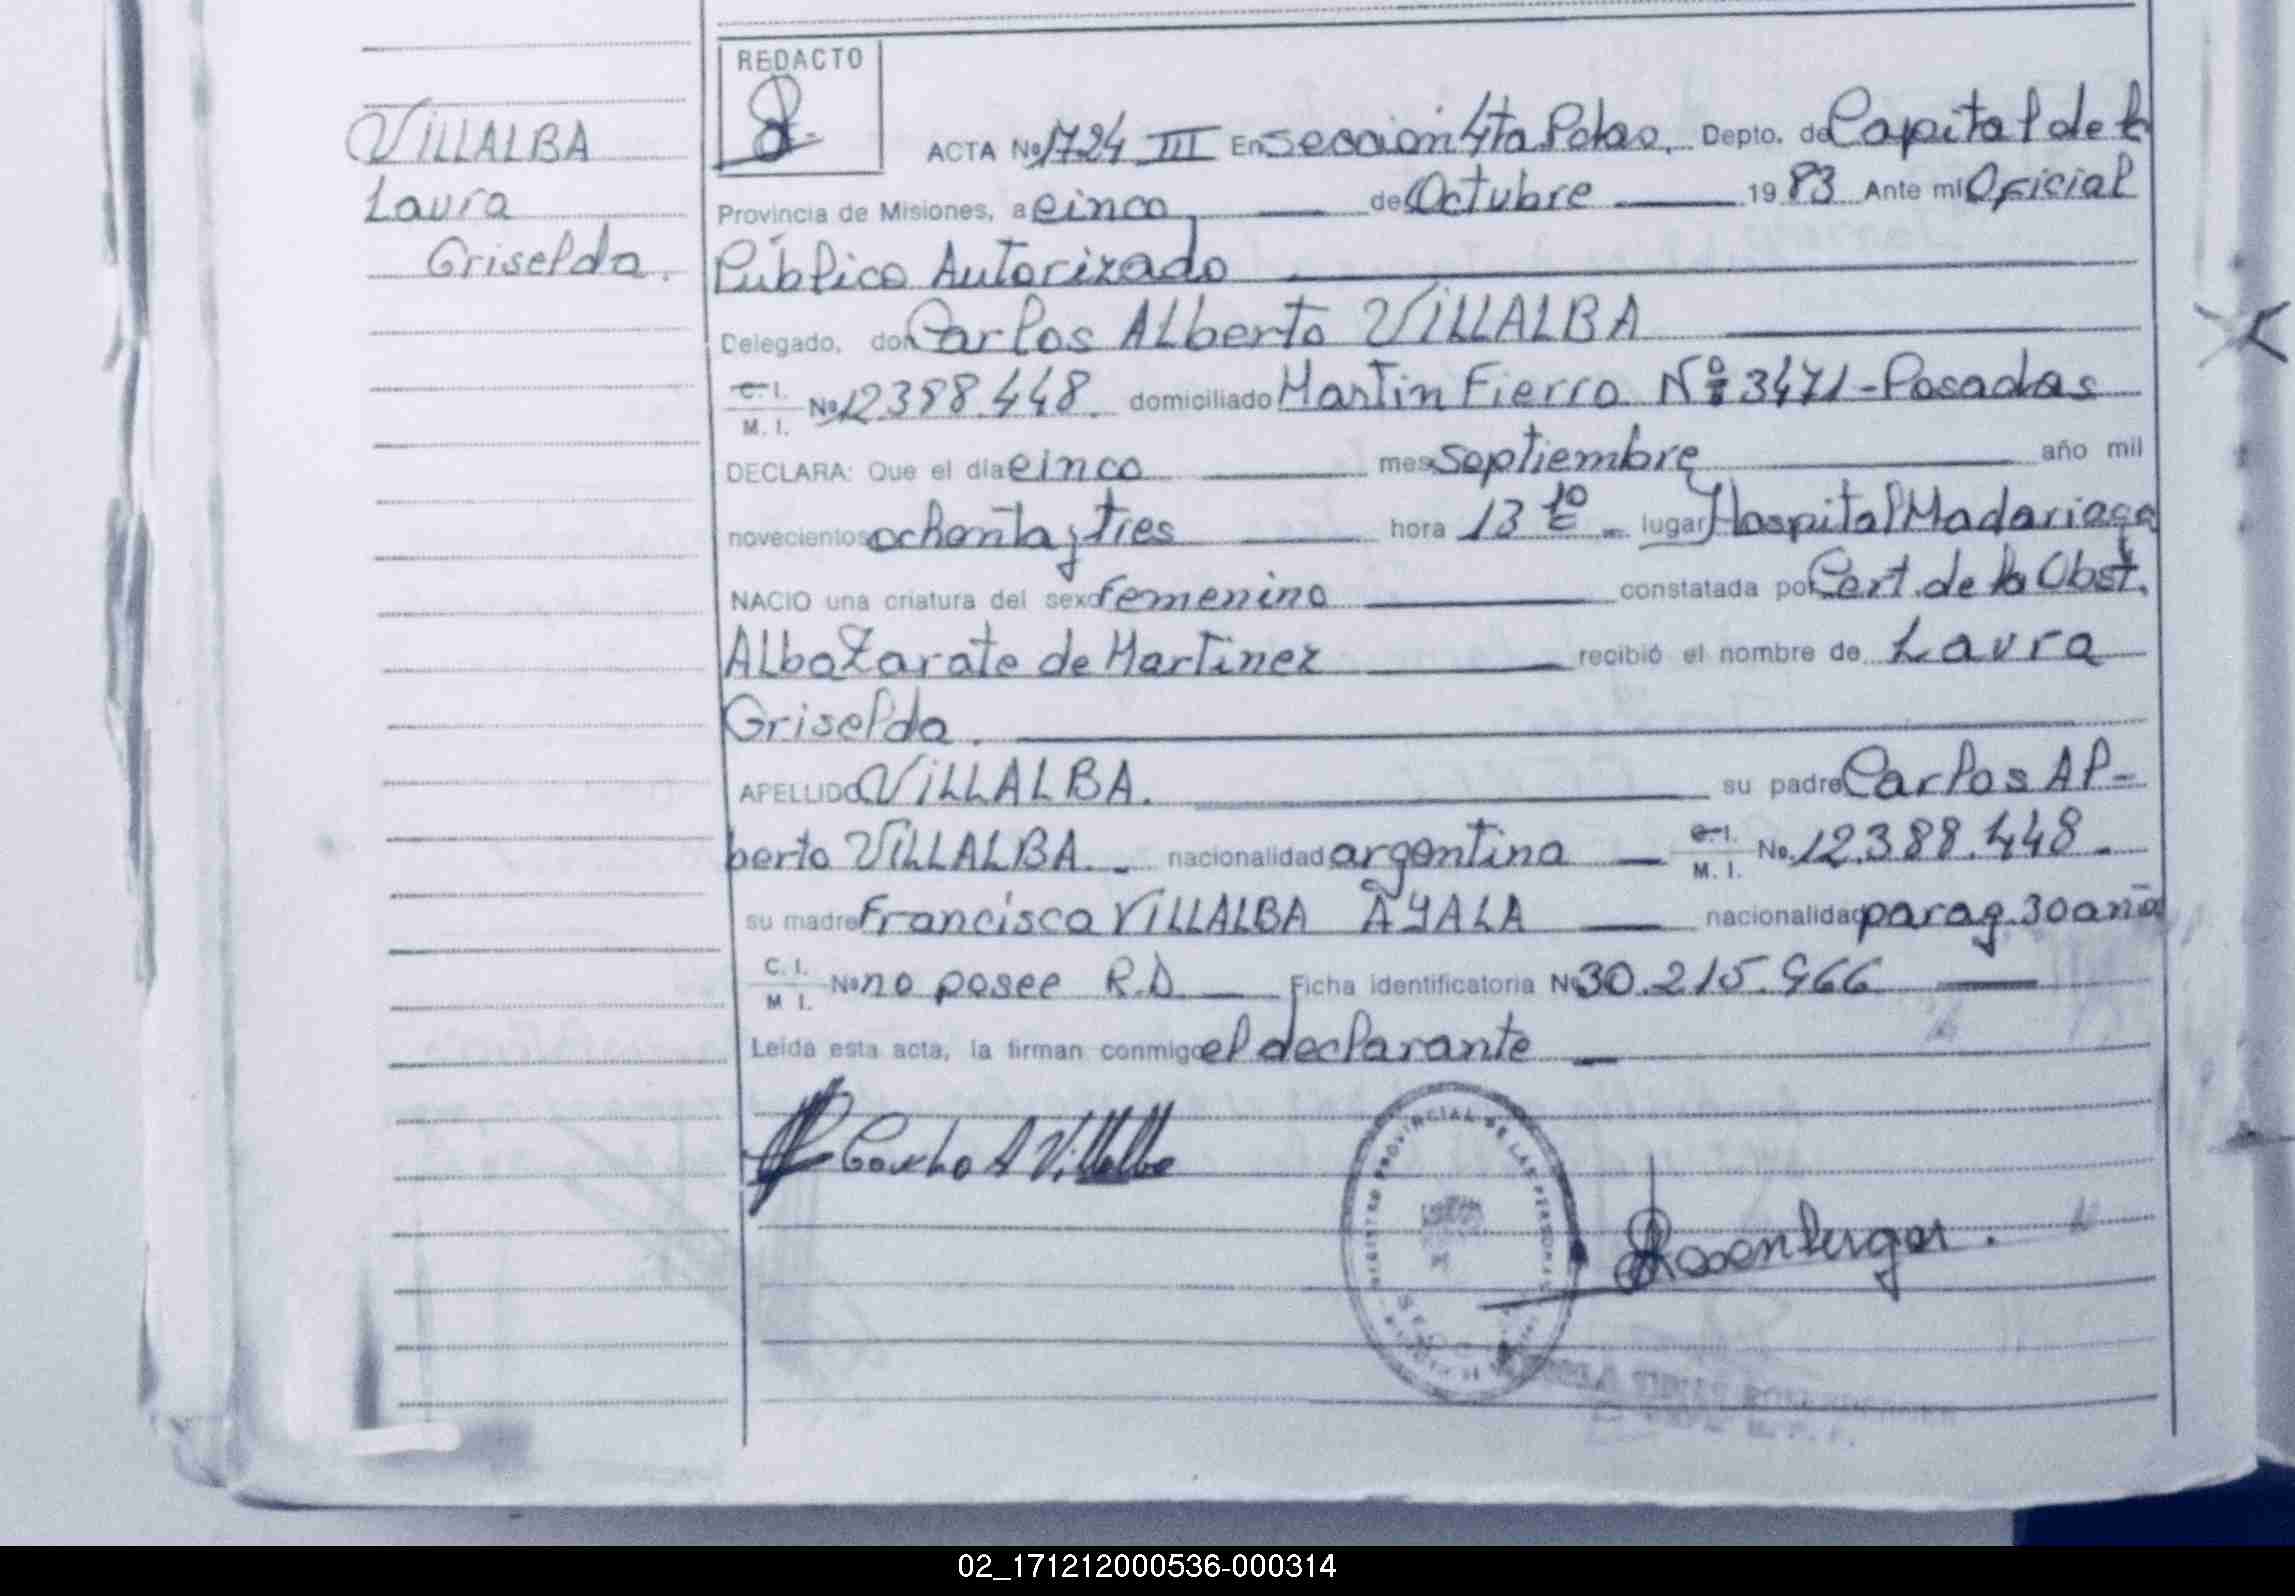 REDACTO
VILLALBA
Laura
Griselda.
ACTA Nº 1724 III En seccion 4ta Pdas. Depto. de Capital de la
Provincia de Misiones, a cinco de Octubre 1983 Ante mi Oficial
Público Autorizado
Delegado, don Carlos Alberto VILLALBA
C. I.
M. I. Nº 12388.448. domiciliado Martin Fierro Nº 3471-Posadas
DECLARA: Que el día cinco mes septiembre año mil
novecientos ochenta y tres hora 13 10 lugar Hospital Madariaga
NACIO una criatura del sexo femenino constatada por Cert. de la Obst.
Alba Zarate de Martinez recibió el nombre de Laura
Griselda.
APELLIDO VILLALBA. su padre Carlos Al-
berto VILLALBA. nacionalidad argentina C. I.
M. I. No. 12.388.448.
su madre Francisca VILLALBA AYALA nacionalidad parag. 30 año
C. I.
M. I. Nº no posee R.D Ficha identificatoria Nº 30.215.966
Leída esta acta, la firman conmigo el declarante
REGISTRO PROVINCIAL DE LAS PERSONAS
02_171212000536-000314